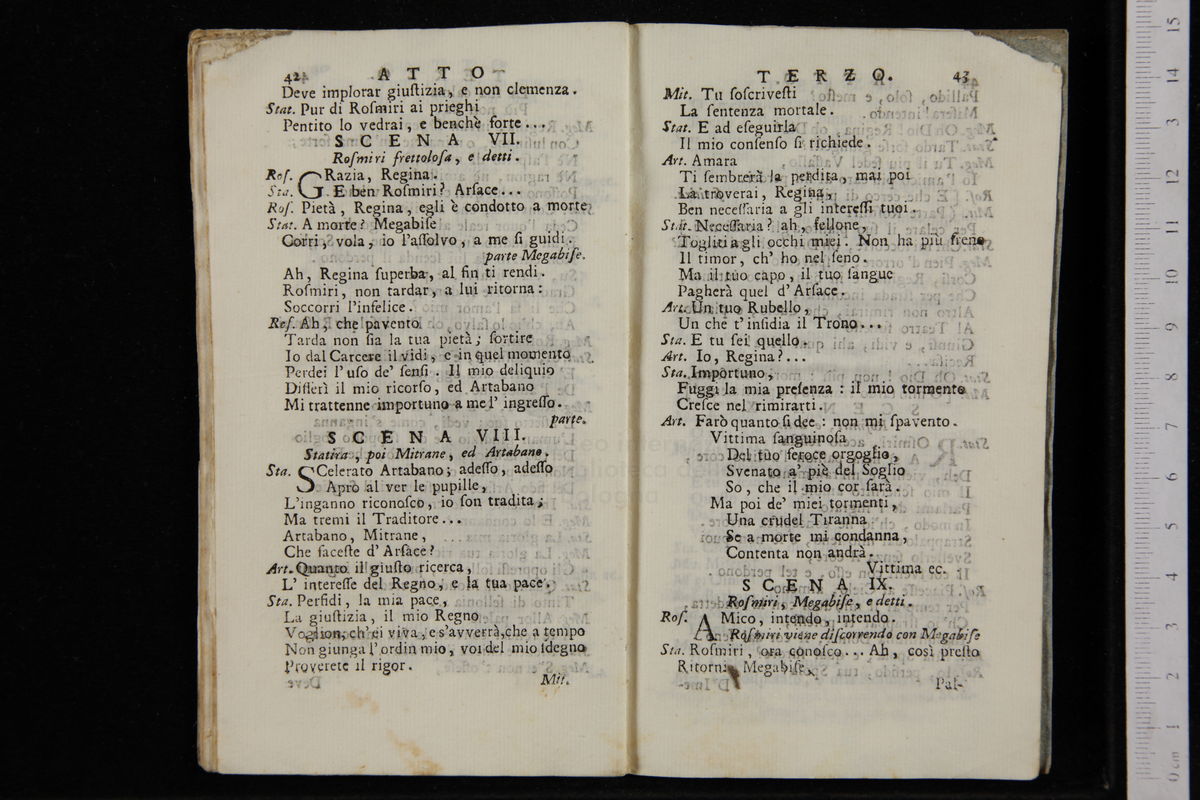 42 ATTO
Deve implorar giuſtizia, e non clemenza.
Stat. Pur di Roſmiri ai prieghi
Pentito lo vedrai, e benchè forte...
SCENA VII.
Roſmiri frettoloſa, e detti.
Roſ. GRazia, Regina.
Sta. E ben Roſmiri? Arſace...
Roſ. Pietà, Regina, egli è condotto a morte
Stat. A morte? Megabiſe
Corri, vola, io l'aſſolvo, a me ſi guidi.
parte Megabiſe.
Ah, Regina ſuperba, al fin ti rendi.
Roſmiri, non tardar, a lui ritorna:
Soccorri l'infelice.
Roſ. Ah, che pavento
Tarda non ſia la tua pietà; ſortire
Io dal Carcere il vidi, e in quel momento
Perdei l'uſo de' ſenſi. Il mio deliquio
Differì il mio ricorſo, ed Artabano
Mi trattenne importuno a me l' ingreſſo.
parte.
SCENA VIII.
Statira, poi Mitrane, ed Artabano.
Sta. SCelerato Artabano; adeſſo, adeſſo
Apro al ver le pupille,
L'inganno riconoſco, io ſon tradita;
Ma tremi il Traditore...
Artabano, Mitrane,
Che faceſte d'Arſace?
Art. Quanto il giuſto ricerca,
L' intereſſe del Regno, e la tua pace.
Sta. Perfidi, la mia pace,
La giuſtizia, il mio Regno
Voglion, ch'ei viva, e s'avverrà, che a tempo
Non giunga l'ordin mio, voi del mio ſdegno
Proverete il rigor.
Mit.
TERZO. 43
Mit. Tu ſoſcriveſti
La ſentenza mortale.
Stat. E ad eſeguirla
Il mio conſenſo ſi richiede.
Art. Amara
Ti ſembrerà la perdita, mai poi
La troverai, Regina,
Ben neceſſaria a gli intereſſi tuoi.
Stat. Neceſſaria? ah, fellone,
Togliti agli occhi miei. Non ha più freno
Il timor, ch' ho nel ſeno.
Ma il tuo capo, il tuo ſangue
Pagherà quel d'Arſace.
Art. Un tuo Rubello,
Un che t'inſidia il Trono...
Sta. E tu ſei quello.
Art. Io, Regina?...
Sta. Importuno,
Fuggi la mia preſenza: il mio tormento
Creſce nel rimirarti.
Art. Farò quanto ſi dee: non mi ſpavento.
Vittima ſanguinoſa
Del tuo feroce orgoglio,
Svenato a' piè del Soglio
So, che il mio cor ſarà.
Ma poi de' miei tormenti,
Una crudel Tiranna
Se a morte mi condanna,
Contenta non andrà.
Vittima ec.
SCENA IX.
Roſmiri, Megabiſe, e detti.
Roſ. AMico, intendo, intendo.
Roſmiri viene diſcorrendo con Megabiſe
Sta. Roſmiri, ora conoſco... Ah, così preſto
Ritorni, Megabiſe,
Pal-